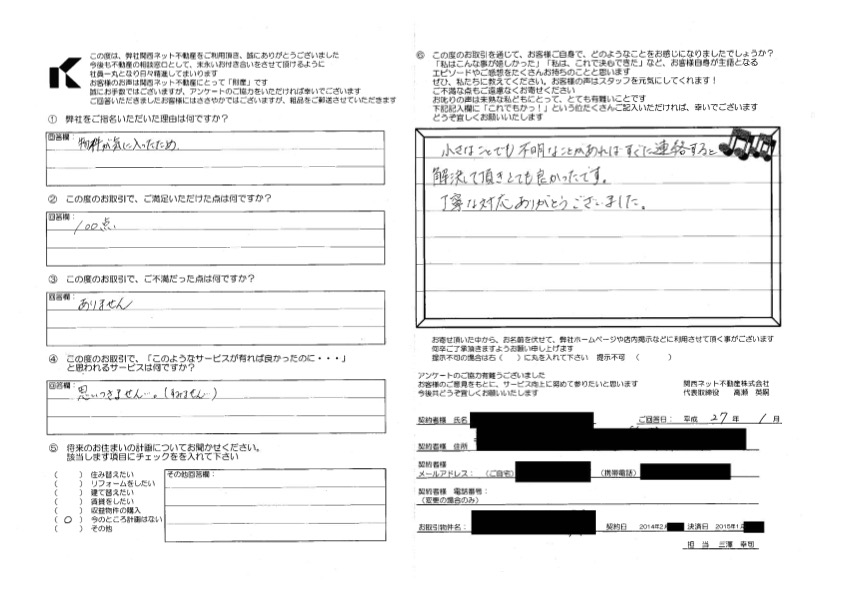 この度は、弊社関西ネット不動産をご利用頂き、誠にありがとうございました
今後も不動産の相談窓口として、末永いお付き合いをさせて頂けるように
社員一丸となり日々精進してまいります
お客様のお声は関西ネット不動産にとって「財産」です
誠にお手数ではございますが、アンケートのご協力をいただければ幸いでございます
ご回答いただきましたお客様にはささやかではございますが、粗品をご郵送させていただきます
① 弊社をご指名いただいた理由は何ですか?
回答欄:
物件が気に入ったため
② この度のお取引で、ご満足いただけた点は何ですか?
回答欄:
100点
③ この度のお取引で、ご不満だった点は何ですか?
回答欄:
ありません
④ この度のお取引で、「このようなサービスが有れば良かったのに・・・」
と思われるサービスは何ですか?
回答欄:
思いつきません…。(すみません…)
⑤ 将来のお住まいの計画についてお聞かせください。
該当します項目にチェックを入れて下さい
( ) 住み替えたい
( ) リフォームをしたい
( ) 建て替えたい
( ) 賃貸をしたい
( ) 収益物件の購入
( ○ ) 今のところ計画はない
( ) その他
その他回答欄:
⑥ この度のお取引を通じて、お客様ご自身で、どのようなことをお感じになりましたでしょうか?
「私はこんな事が嬉しかった」「私は、これで決もできた」など、お客様自身が主語となる
エピソードやご感想をたくさんお持ちのことと思います
ぜひ、私たちに教えてください。お客様の声はスタッフを元気にしてくれます!
ご不満な点もご遠慮なくお寄せください
お叱りの声は未熟な私どもにとって、とても有難いことです
下記記入欄に「これでもかっ!」という位たくさんご記入いただければ、幸いでございます
どうぞ宜しくお願いいたします
小さなことでも不明なことがあればすぐに連絡すると
解決して頂きとても良かったです。
丁寧な対応ありがとうございました。
お寄せ頂いた中から、お名前を伏せて、弊社ホームページや店内掲示などに利用させて頂く事がございます
何卒ご了承頂きますようお願い申し上げます
提示不可の場合は右( )に丸を入れて下さい 提示不可 ( )
アンケートのご協力有難うございました
お客様のご意見をもとに、サービス向上に努めて参りたいと思います
今後共どうぞ宜しくお願いいたします
関西ネット不動産株式会社
代表取締役 高瀬 英嗣
契約者様 氏名
ご回答日: 平成 27 年 1 月
契約者様 住所
契約者様
メールアドレス: (ご自宅) (携帯電話)
契約者様 電話番号:
(変更の場合のみ)
お取引物件名: 契約日 2014年2月 決済日 2015年1月
担 当 三澤 幸司